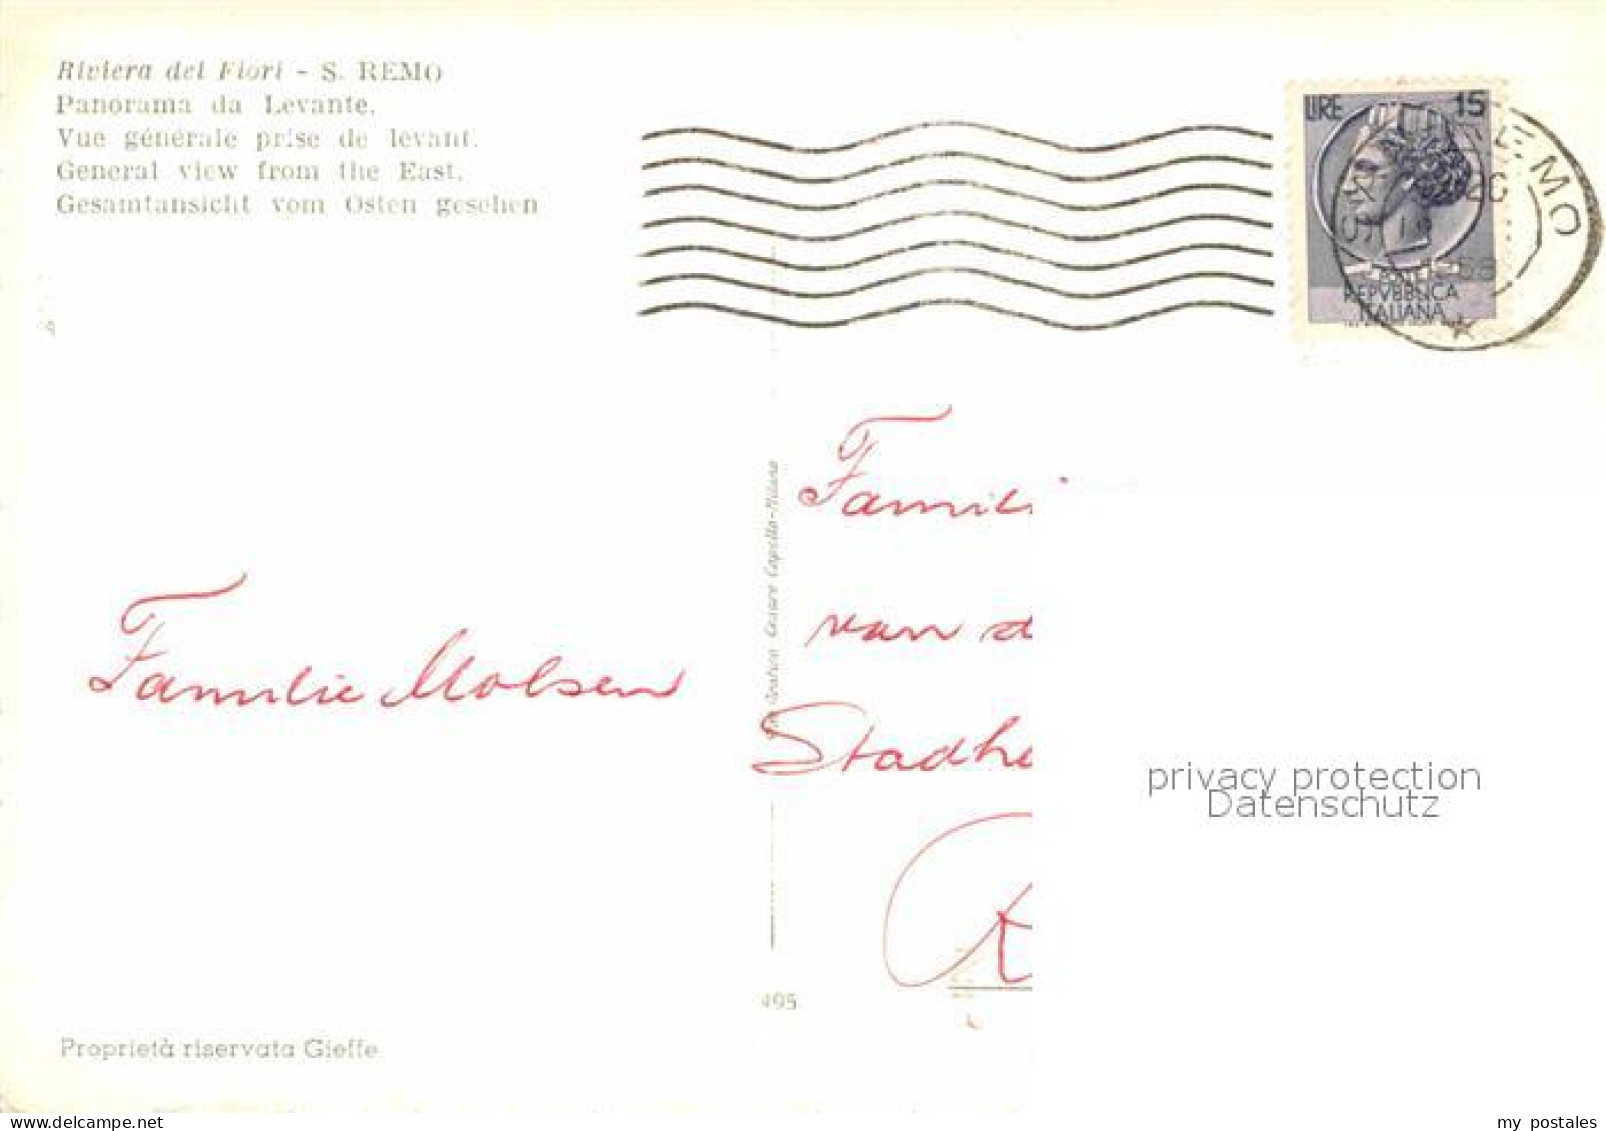 Riviera dei Fiori - S. REMO
Panorama da Levante.
Vue générale prise de levant.
General view from the East.
Gesamtansicht vom Osten gesehen
LIRE 15
POSTE
REPVBBLICA
ITALIANA
Famili
van d
Stadho
Familie Molsen
Cesare Capello-Milano
privacy protection
Datenschutz
495
Proprietà riservata Gieffe
my postales